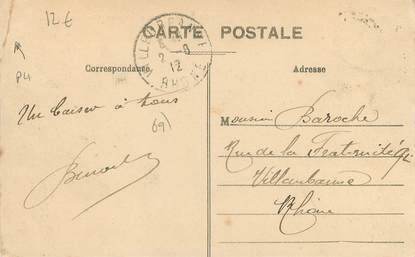 12€
P4
CARTE POSTALE
Correspondance
Adresse
2 - 8
12
RHÔNE
Un baiser à tous
69)
Benoit
Monsieur Baroche
Rue de la Fraternité
Villeurbanne
Rhône